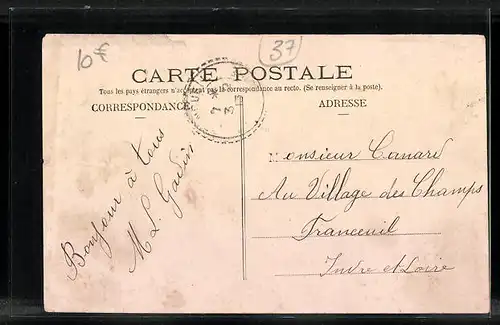 10€
37
CARTE POSTALE
Tous les pays étrangers n'acceptent pas la correspondance au recto. (Se renseigner à la poste).
CORRESPONDANCE
ADRESSE
Bonjour à tous
M L. Gaudin
Monsieur Canard
Au Village des Champs
Franceuil
Indre et Loire